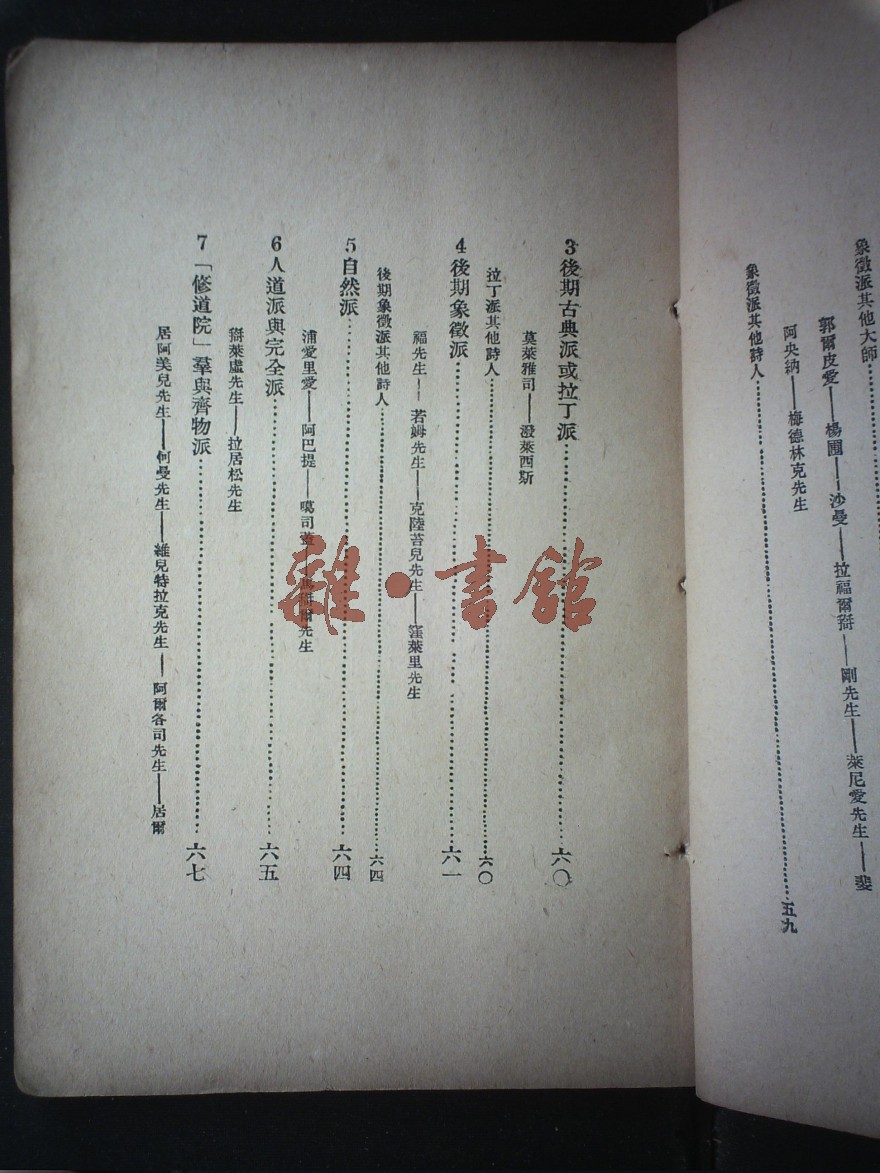 象徵派其他大師
郭爾皮愛——楊圃——沙曼——拉福爾搿——剛先生——萊尼愛先生——斐
阿央納——梅德林克先生
象徵派其他詩人……五九
3 後期古典派或拉丁派……六〇
莫萊雅司——潑萊西斯
拉丁派其他詩人……六〇
4 後期象徵派……六一
福先生——若姆先生——克陸苔兒先生——窪萊里先生
後期象徵派其他詩人……六四
5 自然派……六四
浦愛里愛——阿巴提——噶司 搿爾先生
6 人道派與完全派……六五
搿萊虛先生——拉居松先生
7 「修道院」羣與齊物派……六七
居阿美兒先生——何曼先生——維兒特拉克先生——阿爾各司先生——居爾
雜·書館